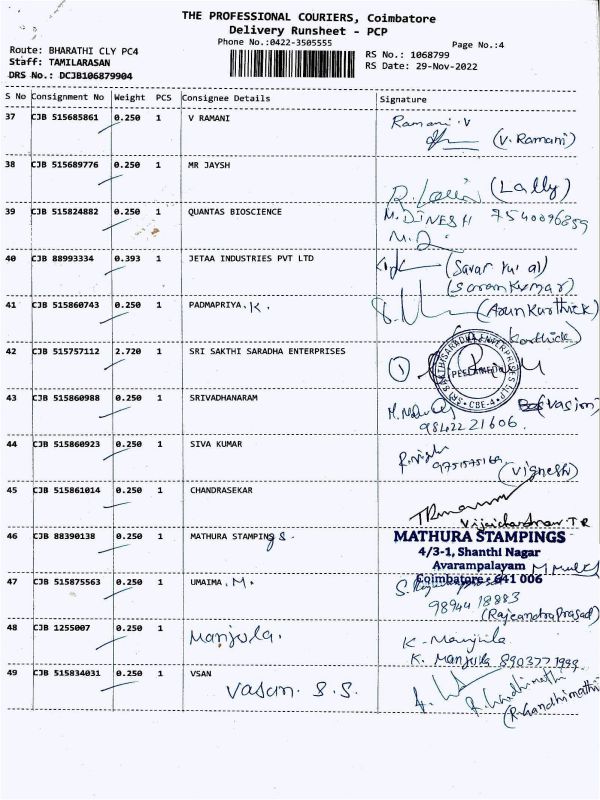 THE PROFESSIONAL COURIERS, Coimbatore
Delivery Runsheet - PCP
Phone No.:0422-3505555
Page No.:4
Route: BHARATHI CLY PC4
RS No.: 1068799
Staff: TAMILARASAN
RS Date: 29-Nov-2022
DRS No.: DCJB106879904
S No Consignment No Weight PCS Consignee Details Signature
37 CJB 515685861 0.250 1 V RAMANI Ramani.V
(V.Ramani)
38 CJB 515689776 0.250 1 MR JAYSH
(Lally)
39 CJB 515824882 0.250 1 QUANTAS BIOSCIENCE M.DINESH 7540096859
40 CJB 88993334 0.393 1 JETAA INDUSTRIES PVT LTD
(Saran Kumar)
41 CJB 515860743 0.250 1 PADMAPRIYA.K. (Arun Karthick)
Karthick)
42 CJB 515757112 2.720 1 SRI SAKTHI SARADHA ENTERPRISES 1
SRI SAKTHI SARADHA ENTERPRISES
CBE-4
43 CJB 515860988 0.250 1 SRIVADHANARAM
9842221606.
44 CJB 515860923 0.250 1 SIVA KUMAR
(Vignesh)
45 CJB 515861014 0.250 1 CHANDRASEKAR
46 CJB 88390138 0.250 1 MATHURA STAMPINGS. MATHURA STAMPINGS
4/3-1, Shanthi Nagar
Avarampalayam
Coimbatore - 641 006
47 CJB 515875563 0.250 1 UMAIMA.M.
98944 18883
(Rajeandra Prasad)
48 CJB 1255007 0.250 1 Manjula. K-Manjula
K. Manjula 8903771999
49 CJB 515834031 0.250 1 VSAN
Vasan. S.S.
R.Gandhimathi
(R.Gandhimathi)